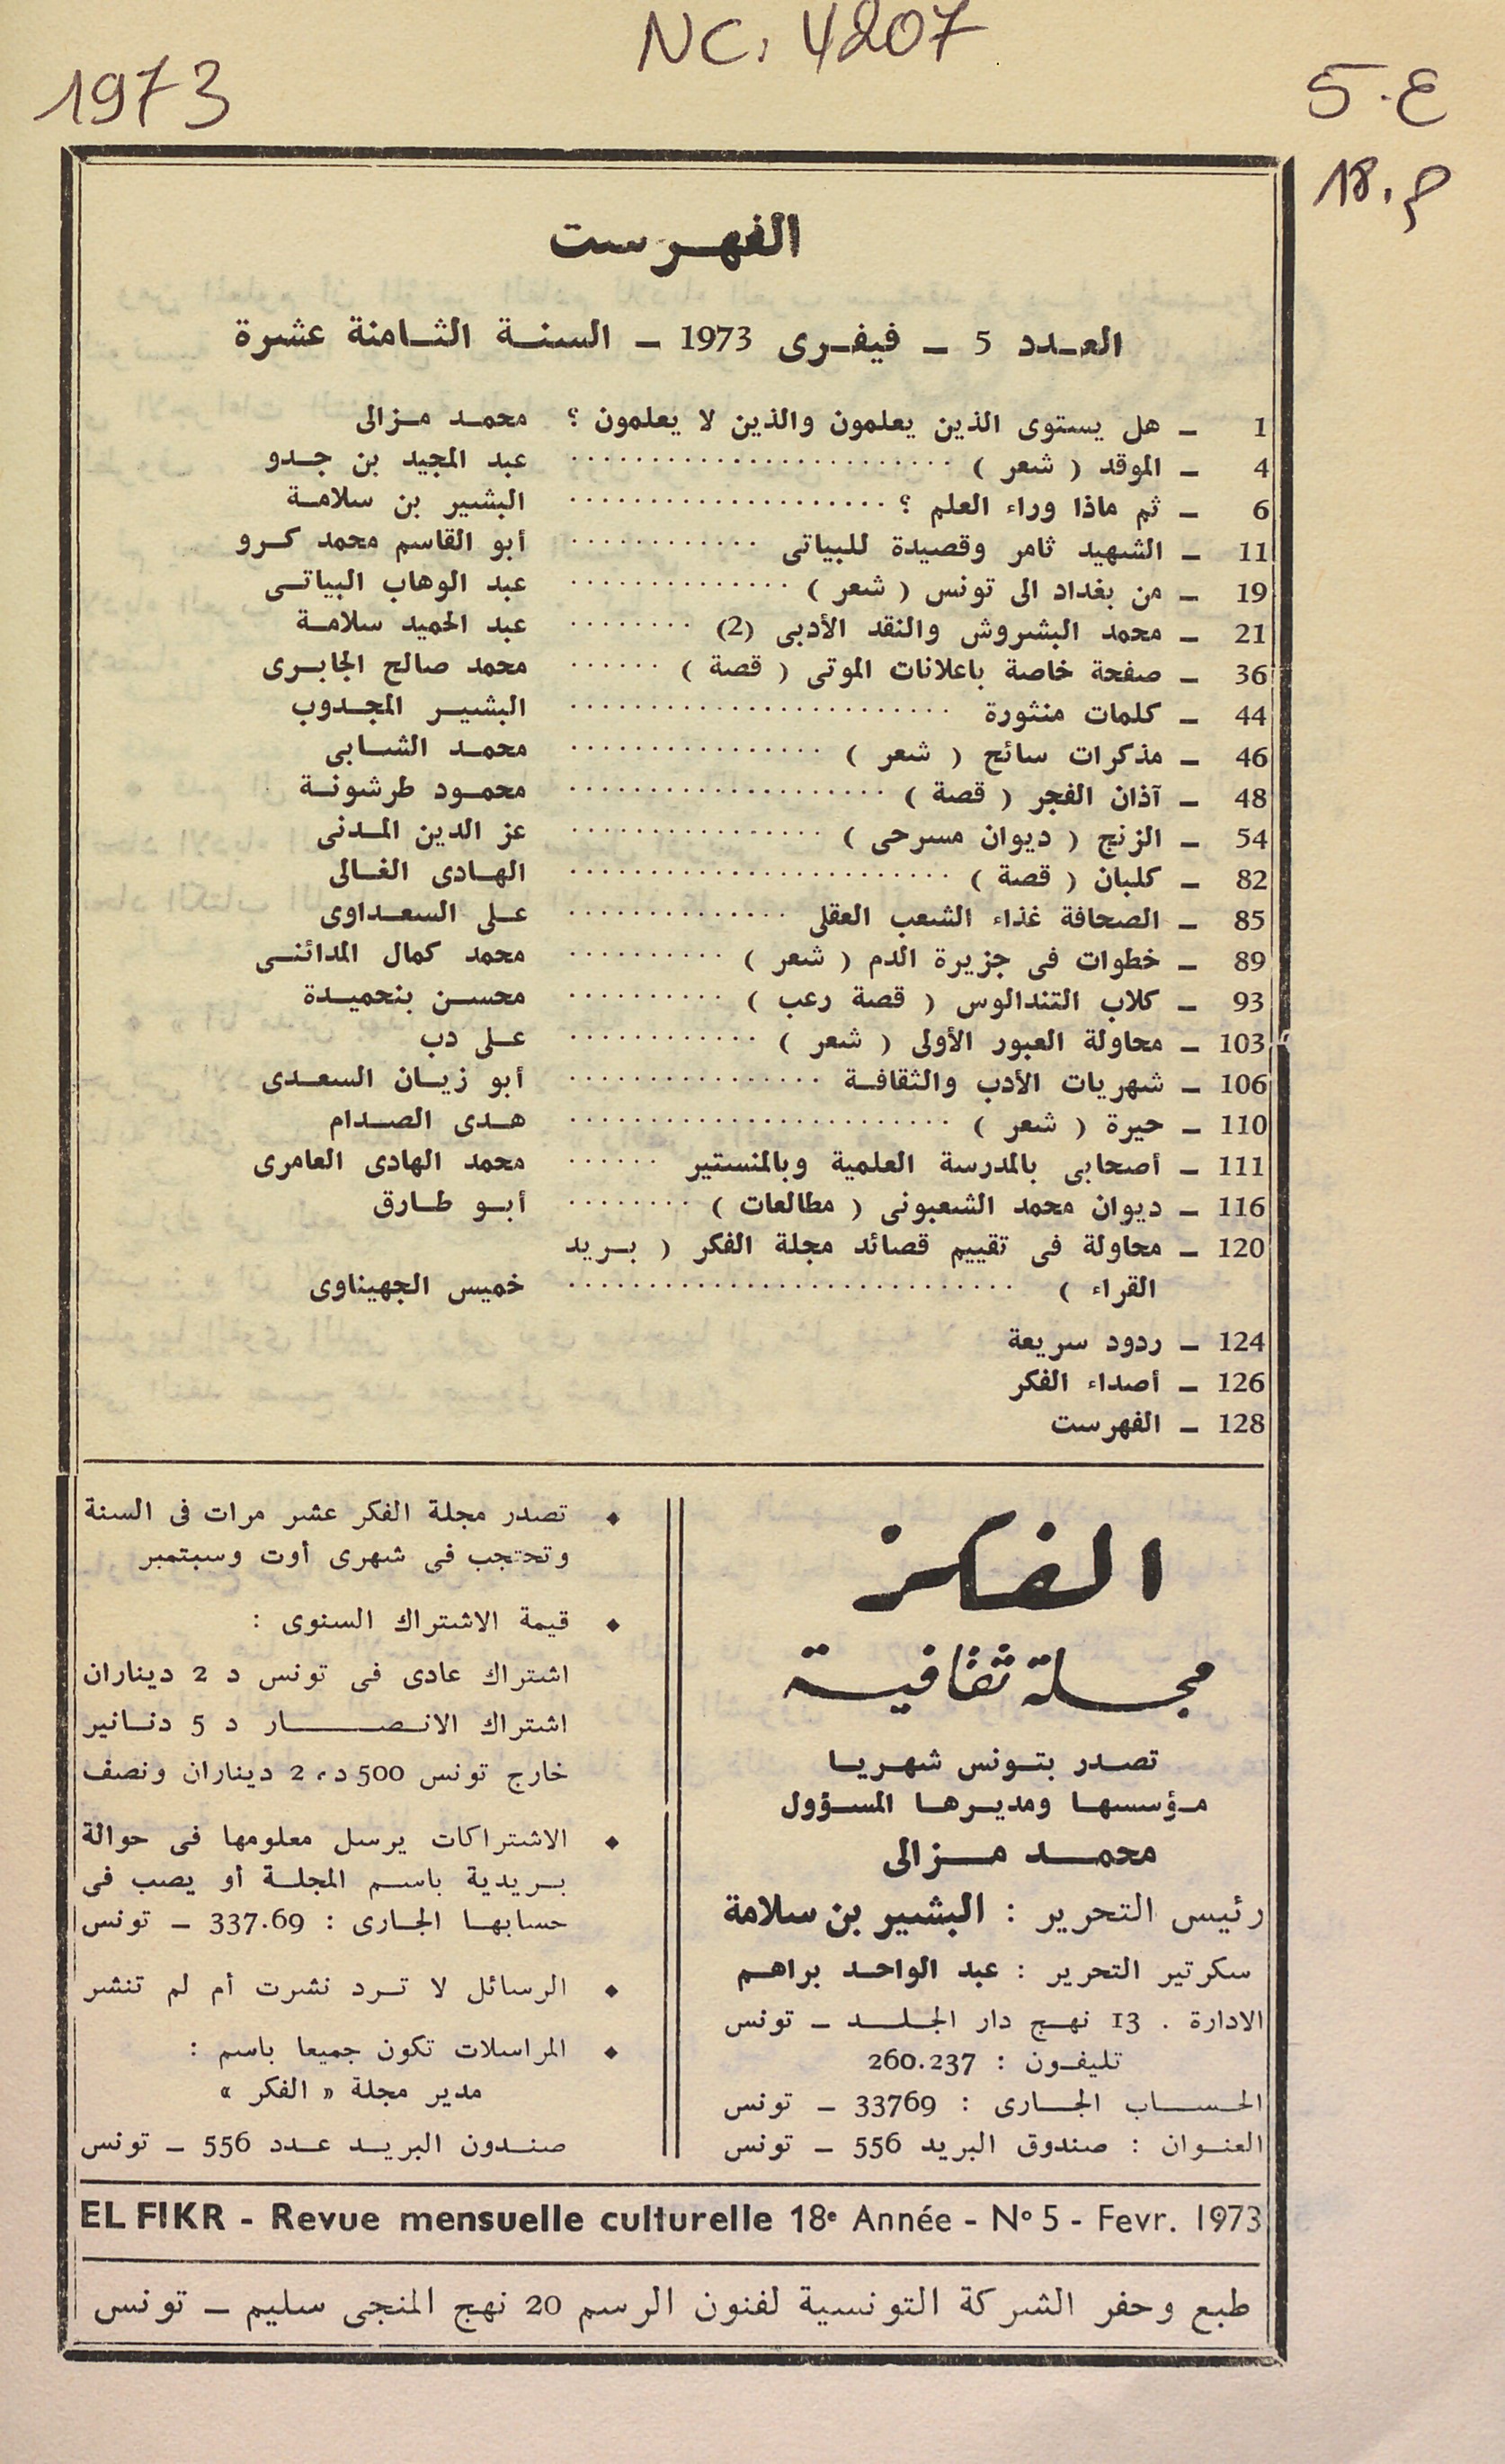 NC. 4207
1973
5.ع
18.م
الفهرست
العدد 5 – فيفرى 1973 – السنة الثامنة عشرة
1 – هل يستوى الذين يعلمون والذين لا يعلمون ؟ محمد مزالى
4 – الموقد ( شعر ) ........................ عبد المجيد بن جدو
6 – ثم ماذا وراء العلم ؟ .................... البشير بن سلامة
11 – الشهيد ثامر وقصيدة للبياتى ............ أبو القاسم محمد كرو
19 – من بغداد الى تونس ( شعر ) .............. عبد الوهاب البياتى
21 – محمد البشروش والنقد الأدبى (2) ........ عبد الحميد سلامة
36 – صفحة خاصة باعلانات الموتى ( قصة ) ...... محمد صالح الجابرى
44 – كلمات منثورة ........................ البشير المجدوب
46 – مذكرات سائح ( شعر ) ................ محمد الشابى
48 – آذان الفجر ( قصة ) .................... محمود طرشونة
54 – الزنج ( ديوان مسرحى ) ................ عز الدين المدنى
82 – كلبان ( قصة ) ........................ الهادى الغالى
85 – الصحافة غذاء الشعب العقلى .............. على السعداوى
89 – خطوات فى جزيرة الدم ( شعر ) .......... محمد كمال المدائنى
93 – كلاب التندالوس ( قصة رعب ) .......... محسن بنحميدة
103 – محاولة العبور الأولى ( شعر ) ............ على دب
106 – شهريات الأدب والثقافة ................ أبو زيان السعدى
110 – حيرة ( شعر ) ........................ هدى الصدام
111 – أصحابى بالمدرسة العلمية وبالمنستير ...... محمد الهادى العامرى
116 – ديوان محمد الشعبونى ( مطالعات ) ........ أبو طارق
120 – محاولة فى تقييم قصائد مجلة الفكر ( بريد
القراء ) ............................. خميس الجهيناوى
124 – ردود سريعة
126 – أصداء الفكر
128 – الفهرست
الفكر
مجلة ثقافية
تصدر بتونس شهريا
مؤسسها ومديرها المسؤول
محمد مزالى
رئيس التحرير : البشير بن سلامة
سكرتير التحرير : عبد الواحد براهم
الادارة . 13 نهج دار الجلد – تونس
تليفون : 260.237
الحساب الجارى : 33769 – تونس
العنوان : صندوق البريد 556 – تونس
◆ تصدر مجلة الفكر عشر مرات فى السنة
وتحتجب فى شهرى أوت وسبتمبر
◆ قيمة الاشتراك السنوى :
اشتراك عادى فى تونس د 2 ديناران
اشتراك الانصار د 5 دنانير
خارج تونس 500 د، 2 ديناران ونصف
◆ الاشتراكات يرسل معلومها فى حوالة
بريدية باسم المجلة أو يصب فى
حسابها الجارى : 337.69 – تونس
◆ الرسائل لا ترد نشرت أم لم تنشر
◆ المراسلات تكون جميعا باسم :
مدير مجلة « الفكر »
صندون البريد عدد 556 – تونس
EL FIKR - Revue mensuelle culturelle 18e Année - N° 5 - Fevr. 1973
طبع وحفر الشركة التونسية لفنون الرسم 20 نهج المنجى سليم – تونس